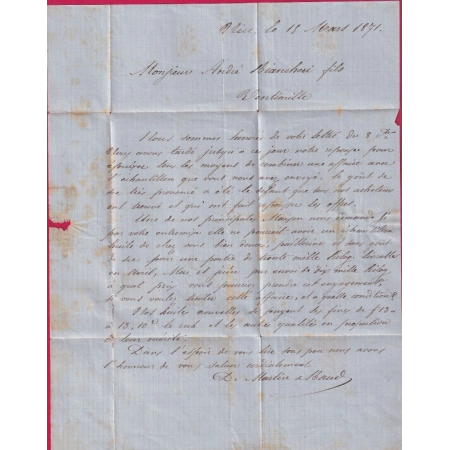 Nice, le 15 Mars 1871.
Monsieur André Biancheri fils
Vintimille
Nous sommes honorés de votre lettre du 8 Ct
Nous avons tardé jusqu'à ce jour notre réponse pour
tous les moyens de combiner une affaire avec
l'échantillon que vous nous avez envoyé. Le goût de
a été le défaut que tous nos acheteurs
ont trouvé et qui ont fait les offres.
Une de nos principales Maisons nous demande si
par votre entremise elle ne pourrait avoir un échantillon
huile de chez vous bien douce, paillerine et sans goût
de pour une partie de trente mille Kilog. livrable
en Avril, Mai et juin, par envoi de dix mille Kilog
à quel prix vous pourriez prendre cet engagement,
si vous voulez traiter cette affaire, et à quelle condition.
Nos huiles nouvelles se payent les fines de f 13
à 13,10 le rub et les autres qualités en proportion
de leur mérite.
Dans l'espoir de vous lire sous peu nous avons
l'honneur de vous saluer cordialement
D. Martin &